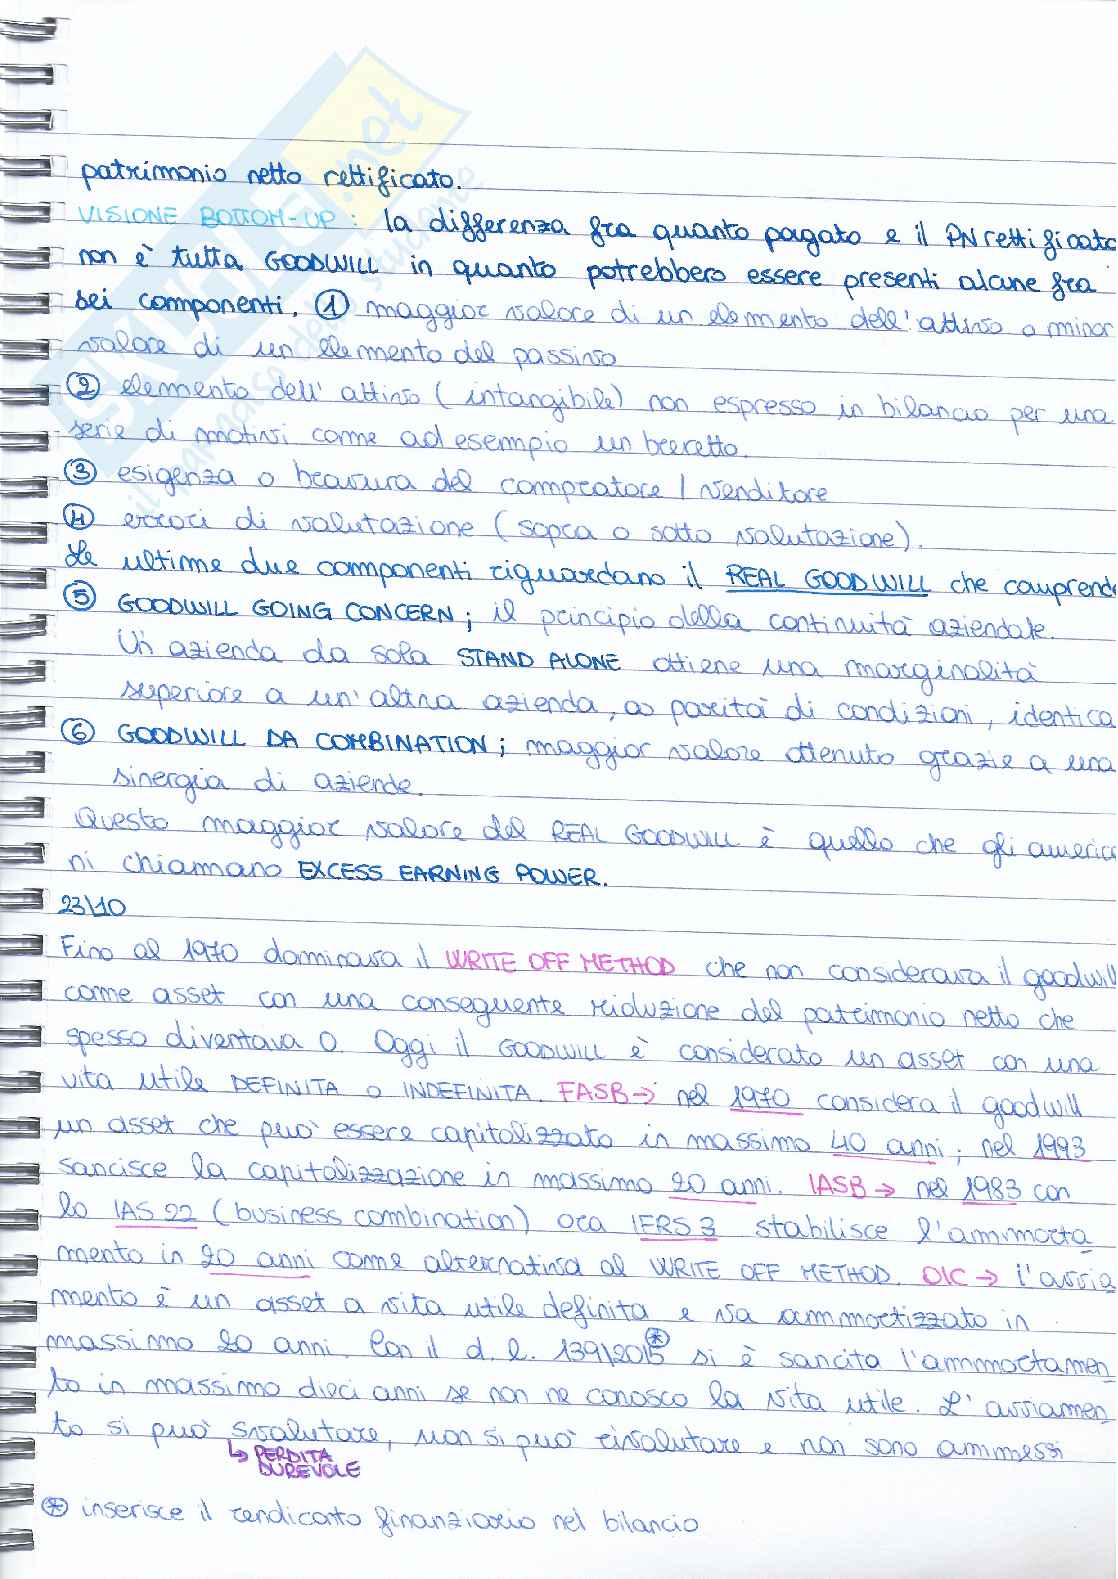 patrimonio netto rettificato.
VISIONE BOTTOM-UP: la differenza fra quanto pagato e il PN rettificato
non è tutta GOODWILL in quanto potrebbero essere presenti alcune fra
sei componenti. ① maggior valore di un elemento dell'attivo o minor
valore di un elemento del passivo
② elemento dell'attivo (intangibile) non espresso in bilancio per una
serie di motivi come ad esempio un brevetto.
③ esigenza o bravura del compratore / venditore
④ errori di valutazione (sopra o sotto valutazione).
Le ultime due componenti riguardano il REAL GOODWILL che comprende
⑤ GOODWILL GOING CONCERN; il principio della continuità aziendale.
Un'azienda da sola STAND ALONE ottiene una marginalità
superiore a un'altra azienda, a parità di condizioni, identica
⑥ GOODWILL DA COMBINATION; maggior valore ottenuto grazie a una
sinergia di aziende.
Questo maggior valore del REAL GOODWILL è quello che gli america
ni chiamano EXCESS EARNING POWER.
23\10
Fino al 1970 dominava il WRITE OFF METHOD che non considerava il goodwill
come asset con una conseguente riduzione del patrimonio netto che
spesso diventava 0. Oggi il GOODWILL è considerato un asset con una
vita utile DEFINITA o INDEFINITA. FASB → nel 1970 considera il goodwill
un asset che può essere capitalizzato in massimo 40 anni; nel 1993
sancisce la capitalizzazione in massimo 20 anni. IASB → nel 1983 con
lo IAS 22 (business combination) ora IFRS 3 stabilisce l'ammorta
mento in 20 anni come alternativa al WRITE OFF METHOD. OIC → l'avvia
mento è un asset a vita utile definita e va ammortizzato in
massimo 20 anni. Con il d. l. 139\2015 ⊛ si è sancito l'ammortamen
to in massimo dieci anni se non ne conosco la vita utile. L'avviamen
to si può svalutare, non si può rivalutare e non sono ammessi
↳ PERDITA
DUREVOLE
⊛ inserisce il rendicoto finanziario nel bilancio
SKUOLA.net
il paradiso dello studente